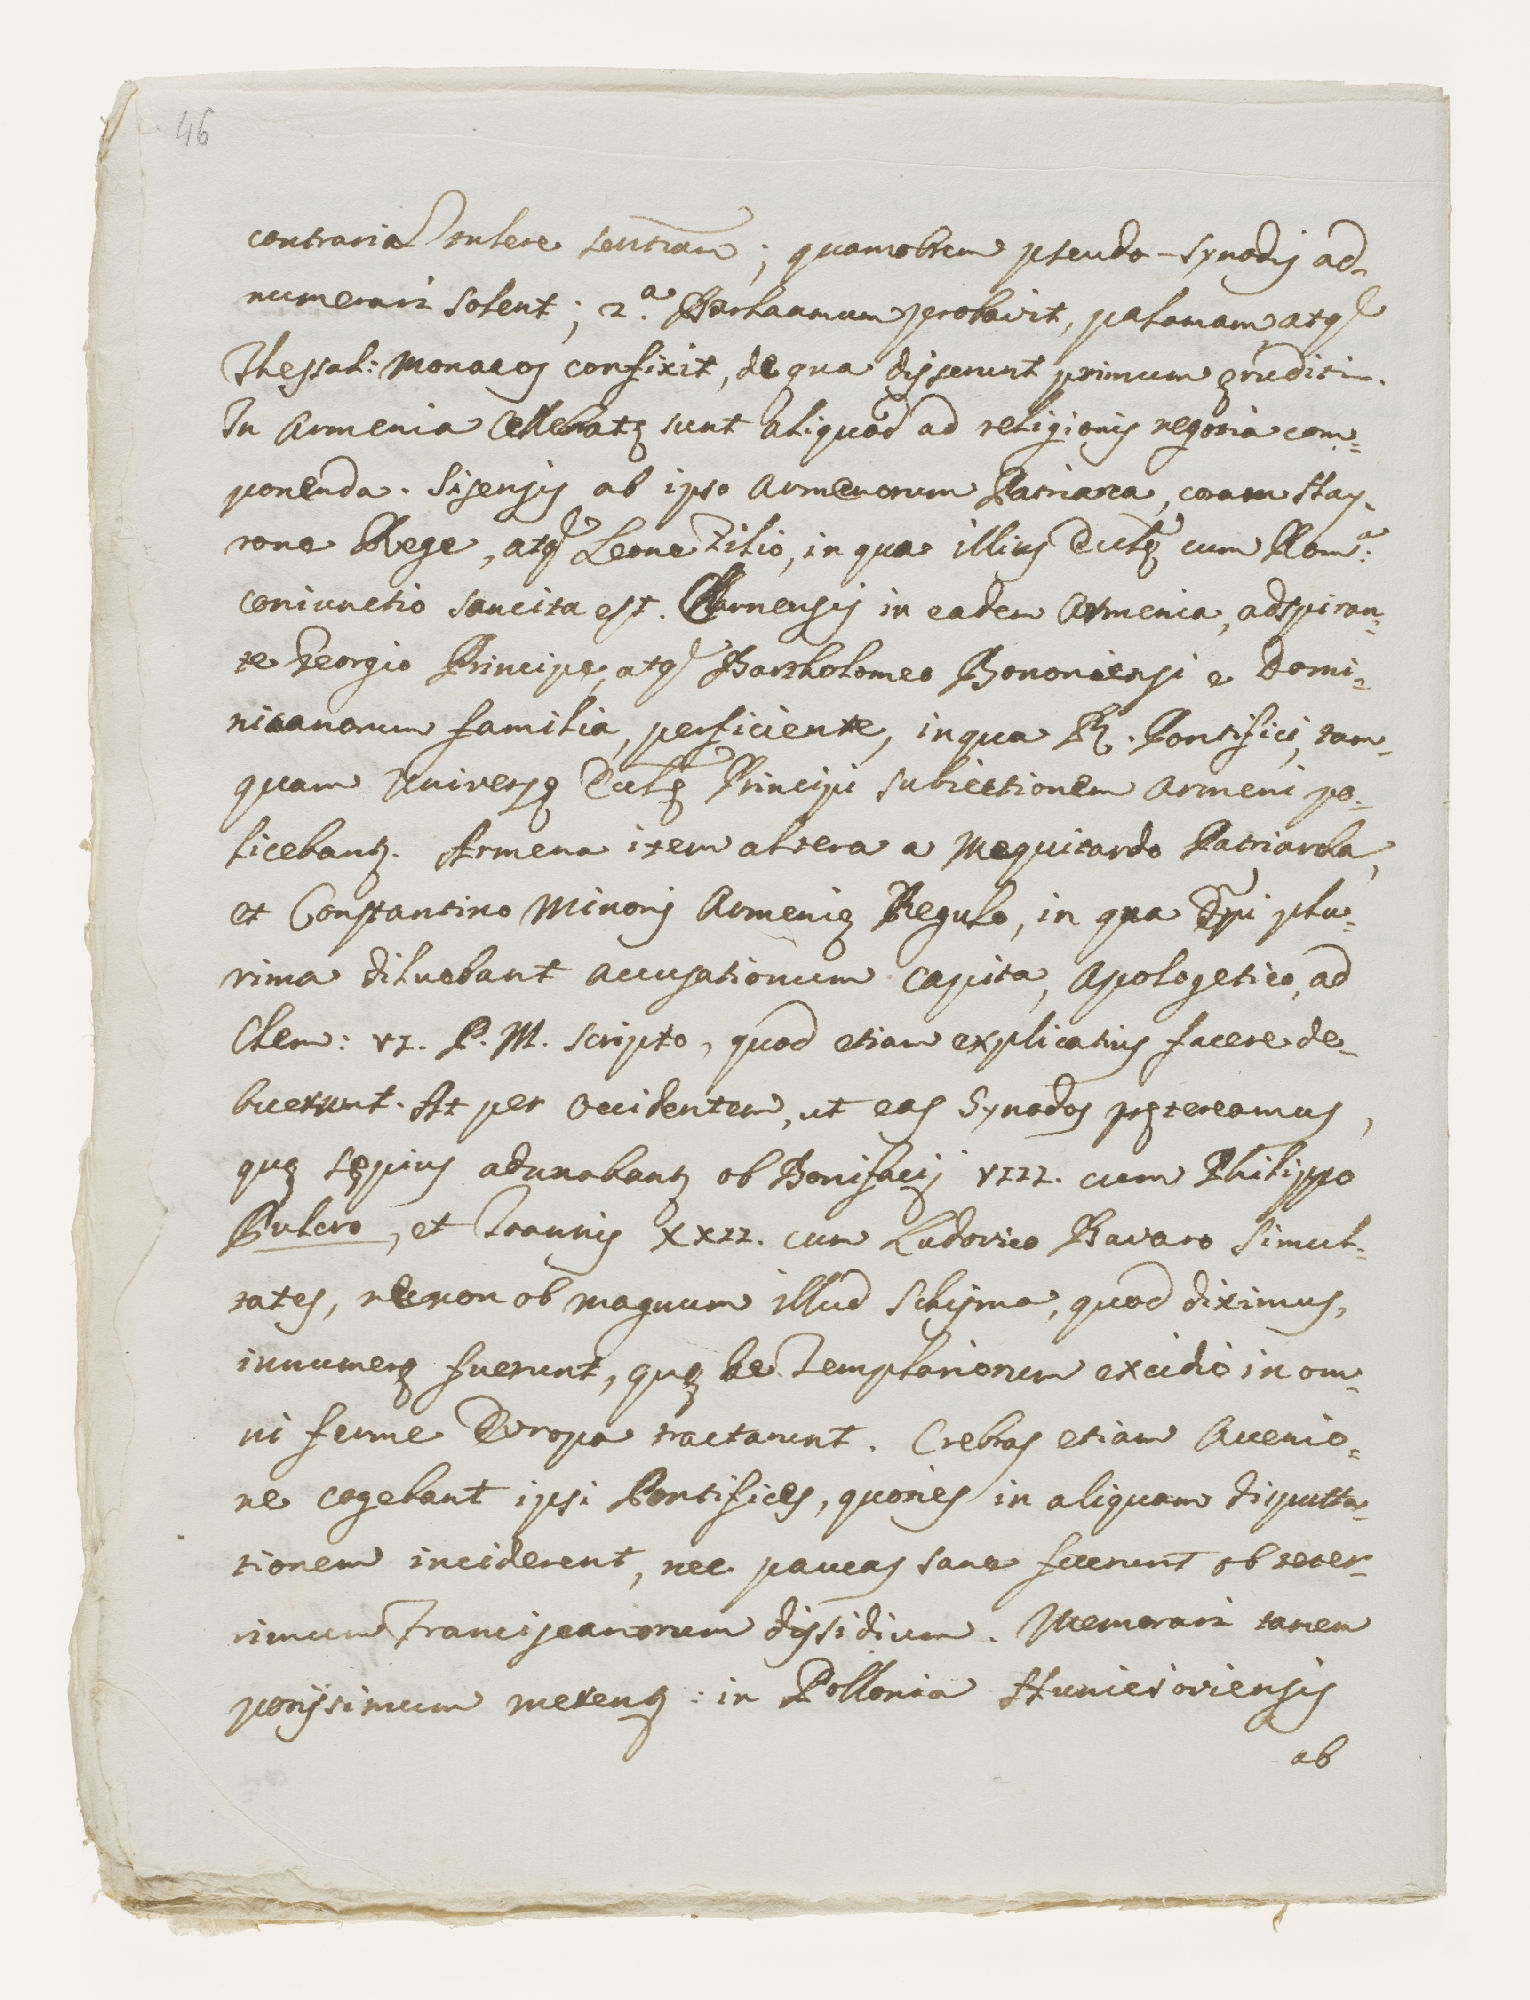 46
contraria tulere sentiam; quamobrem pseudo-synodis ad-
numerari solent; 2.a Barlaamum probavit, palamam, atq
Thessal: Monacos confixit, de qua disserunt primum ęruditi.
In Armenia Celebratę sunt aliquod ad religionis negotia com-
ponenda. Sisensis ab ipso Armenorum Patriarca, coram Hay-
tono Rege, atq Leone Filio, in qua illius Ecclę cum Rom.a:
coniunctio sancita est. Charnensis in eadem Armenia, adspiran-
te Georgio Principe, atq Bartholomeo Bononiensi e Domi-
nicanorum familia, perficiente, in qua R. Pontifici, tam-
quam Universę Ecclę Principi subiectionem Armeni po-
licebantę. Armena item altera a Mequitardo Patriarcha,
et Constantino Minoris Armenię Regulo, in qua Epi plu-
rima diluebant accusationum capita, Apologetico, ad
Clem: VI. P. M. scripto, quod etiam explicatius facere de-
buerunt. At per Occidentem, ut eas Synodos prętereamus,
quę sępius adunabantę ob Bonifacij VIII. cum Philippo
Pulcro, et Joannis XXII. cum Ludovico Bavaro simul-
tates, necnon ob magnum illud Schisma, quod diximus,
innumerę fuerunt, quę de Templariorum excidio in om-
ni ferme Europa tractarunt. Crebras etiam Avenio-
ne cogebant ipsi Pontifices, quoties in aliquam disputta-
tionem inciderent, nec paucas sane fecerunt ob teter-
rimum Franciscanorum dissidium. Memorari tamen
potissimum merentę: in Pollonia Huniejoviensis
ab